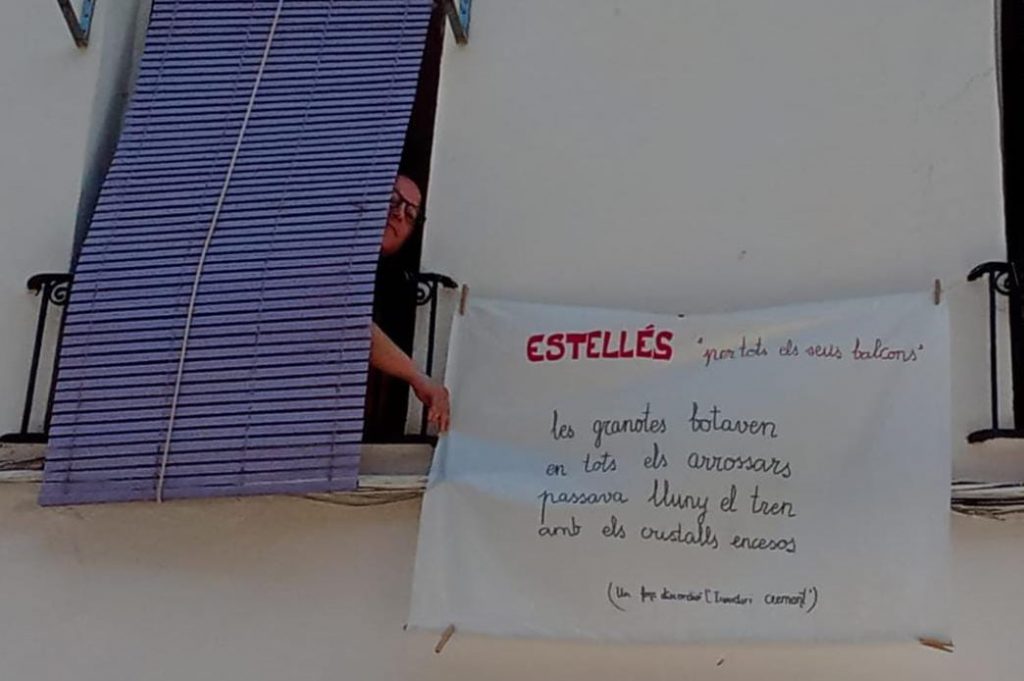 ESTELLÉS "per tots els seus balcons"
les granotes botaven
en tots els arrossars
passava lluny el tren
amb els cristalls encesos
(Un